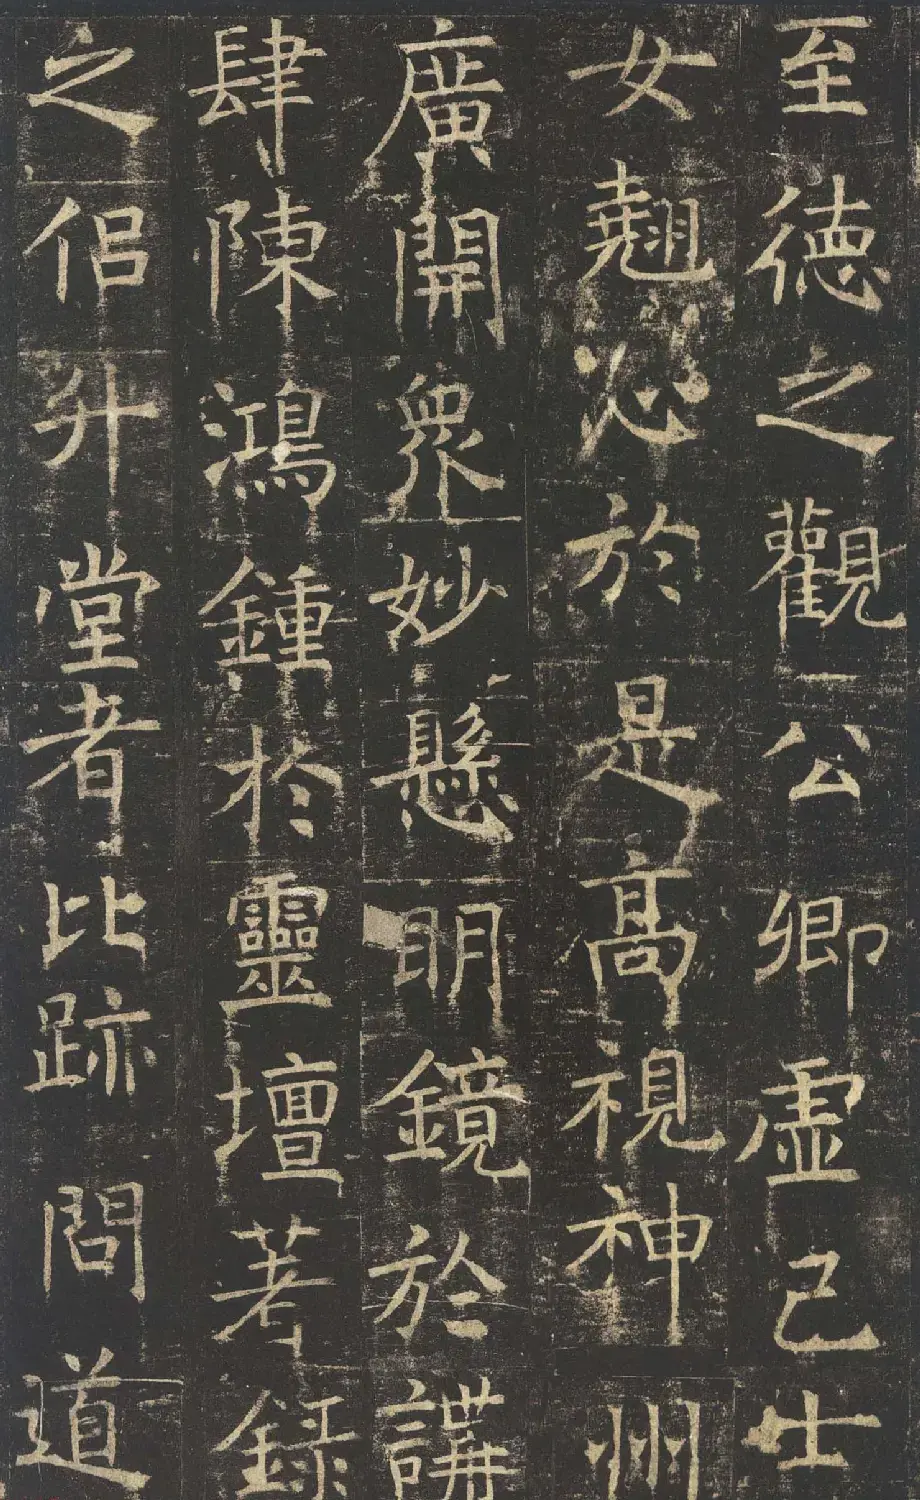 至德之觀公卿虛己士
女翹心於是高視神州
廣開眾妙懸明鏡於講
肆陳鴻鍾於靈壇著錄
之侣升堂者比跡問道